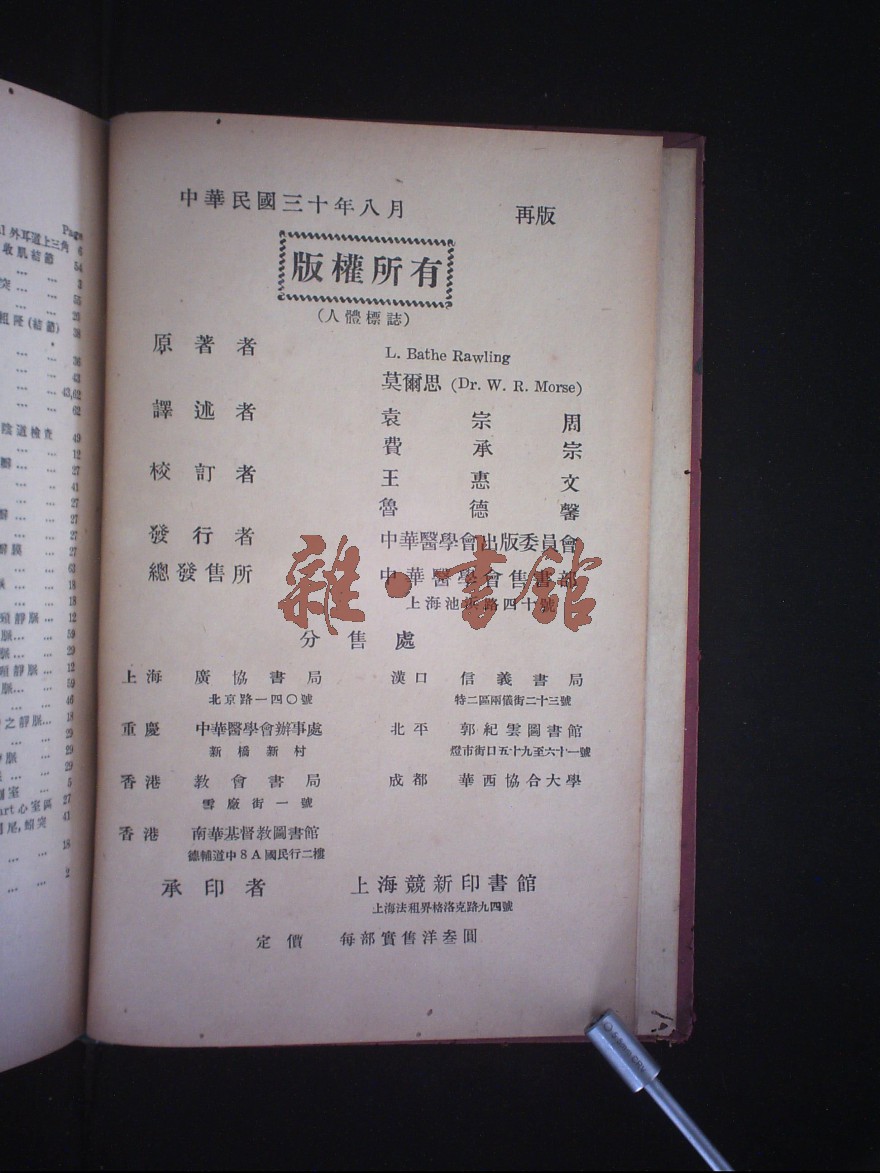 Page
外耳道上三角 6
收肌結節 54
... ... 3
突 ... ... 55
... ... 25
粗隆(結節) 38
... ... 36
... ... 43
... ... 43,62
... ... 62
陰道檢查 49
... ... 12
... ... 27
... ... 41
... ... 27
... ... 27
... 27
... ... 63
... ... 18
... ... 18
靜脈 ... 12
脈... ... 59
脈... ... 29
靜脈 ... 12
脈... ... 59
... ... 46
之靜脈... 18
... ... 29
脈 ... ... 29
... ... 29
室 ... ... 5
art 心室區 27
尾,蚓突 41
... ... 18
... ... 2
中華民國三十年八月 再版
版權所有
(人體標誌)
原著者 L. Bathe Rawling
莫爾思 (Dr. W. R. Morse)
譯述者 袁宗周
費承宗
校訂者 王惠文
魯德馨
發行者 中華醫學會出版委員會
總發售所 中華醫學會售書部
上海池浜路四十號
雜·書館
分售處
上海 廣協書局 漢口 信義書局
北京路一四〇號 特二區兩儀街二十三號
重慶 中華醫學會辦事處 北平 郭紀雲圖書館
新橋新村 燈市街口五十九至六十一號
香港 教會書局 成都 華西協合大學
雪廠街一號
香港 南華基督教圖書館
德輔道中8A國民行二樓
承印者 上海競新印書館
上海法租界格洛克路九四號
定價 每部實售洋叁圓